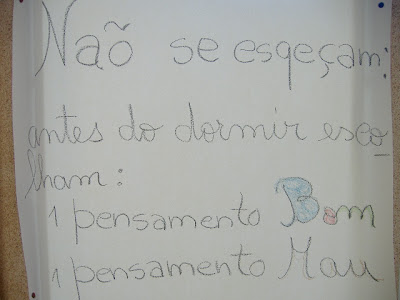 Naõ se esqeçam:
antes do dormir esco_
lham:
1 pensamento Bom
1 pensamento Mau